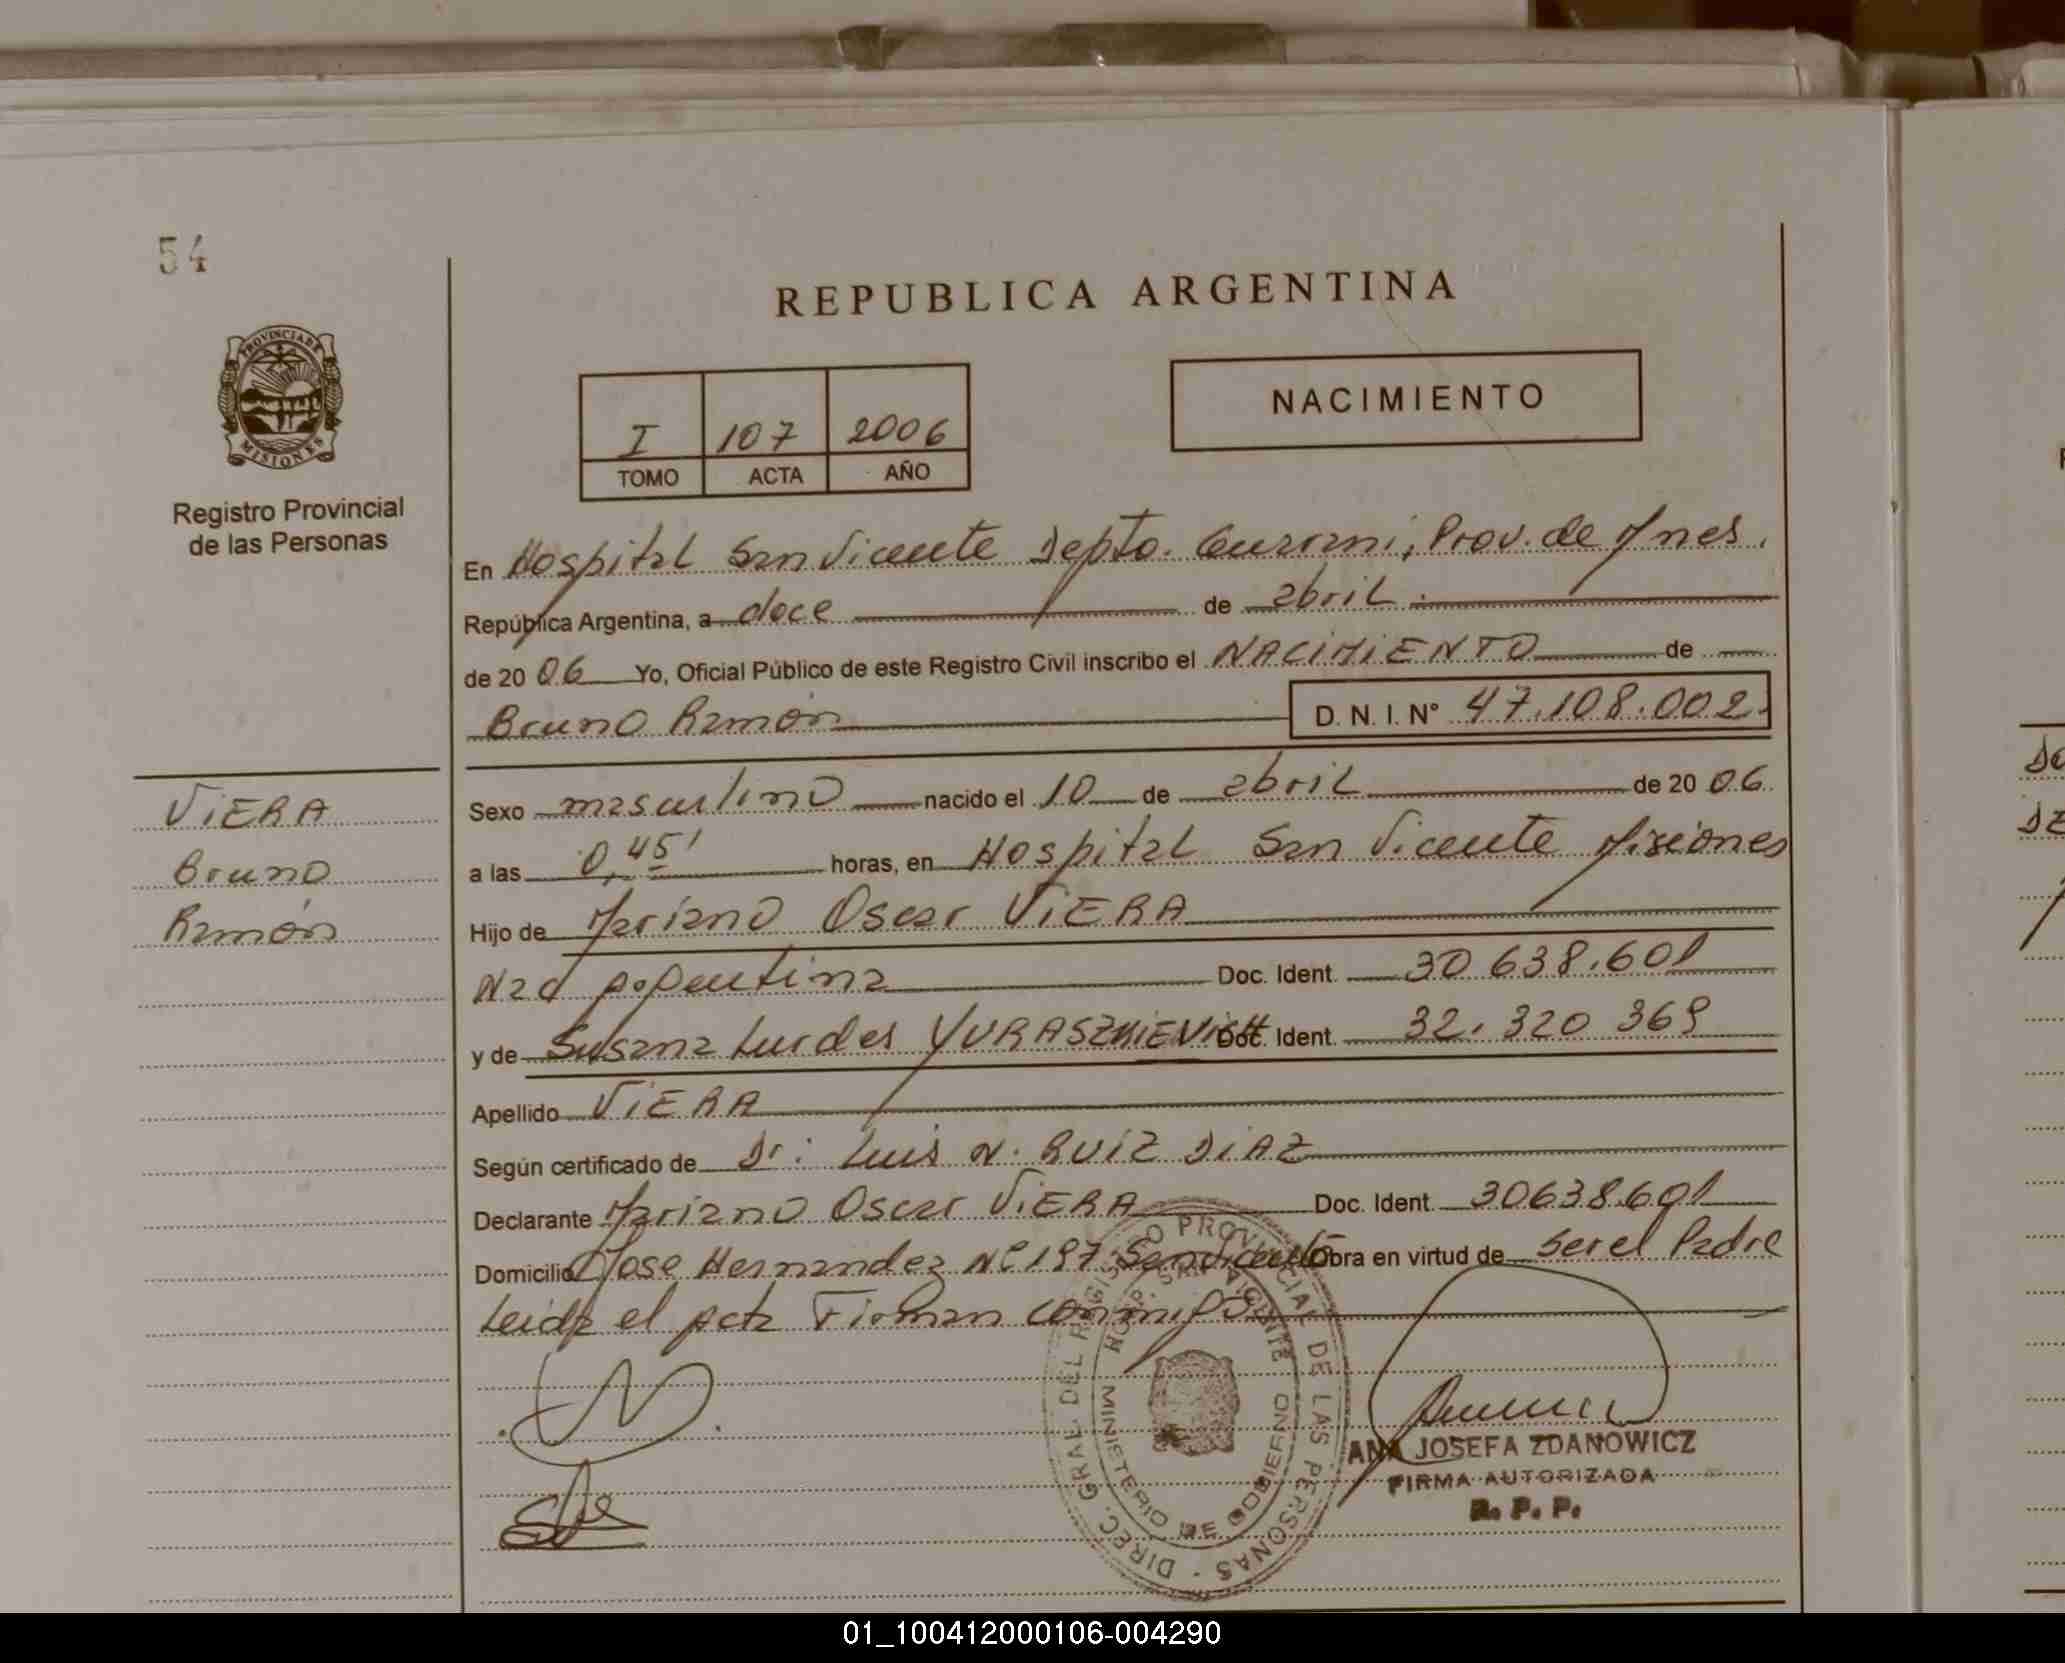 54
REPUBLICA ARGENTINA
PROVINCIA DE
MISIONES
Registro Provincial
de las Personas
I 107 2006
TOMO ACTA AÑO
NACIMIENTO
En Hospital San Vicente Depto. Guarani, Prov. de Mnes.
República Argentina, a doce de abril
de 2006 Yo, Oficial Público de este Registro Civil inscribo el NACIMIENTO de
Bruno Ramón D. N. I. N° 47.108.002
VIERA
Bruno
Ramón
Sexo masculino nacido el 10 de abril de 2006
a las 0,45' horas, en Hospital San Vicente Misiones
Hijo de Mariano Oscar VIERA
Nac Argentina Doc. Ident. 30 638.601
y de Susana Lurdes Doc. Ident. 32.320 369
Apellido VIERA
Según certificado de Dr: Luis N. RUIZ DIAZ
Declarante Mariano Oscar VIERA Doc. Ident. 30638.601
Domicilio Jose Hernandez Nº 197 San Vicente Obra en virtud de Ser el Padre
Leida el acta Firman conmigo
DIREC. GRAL. DEL REGISTRO PROVINCIAL DE LAS PERSONAS
HOSP. SAN VICENTE
MINISTERIO DE GOBIERNO
ANA JOSEFA ZDANOWICZ
FIRMA AUTORIZADA
R. P. P.
01_100412000106-004290